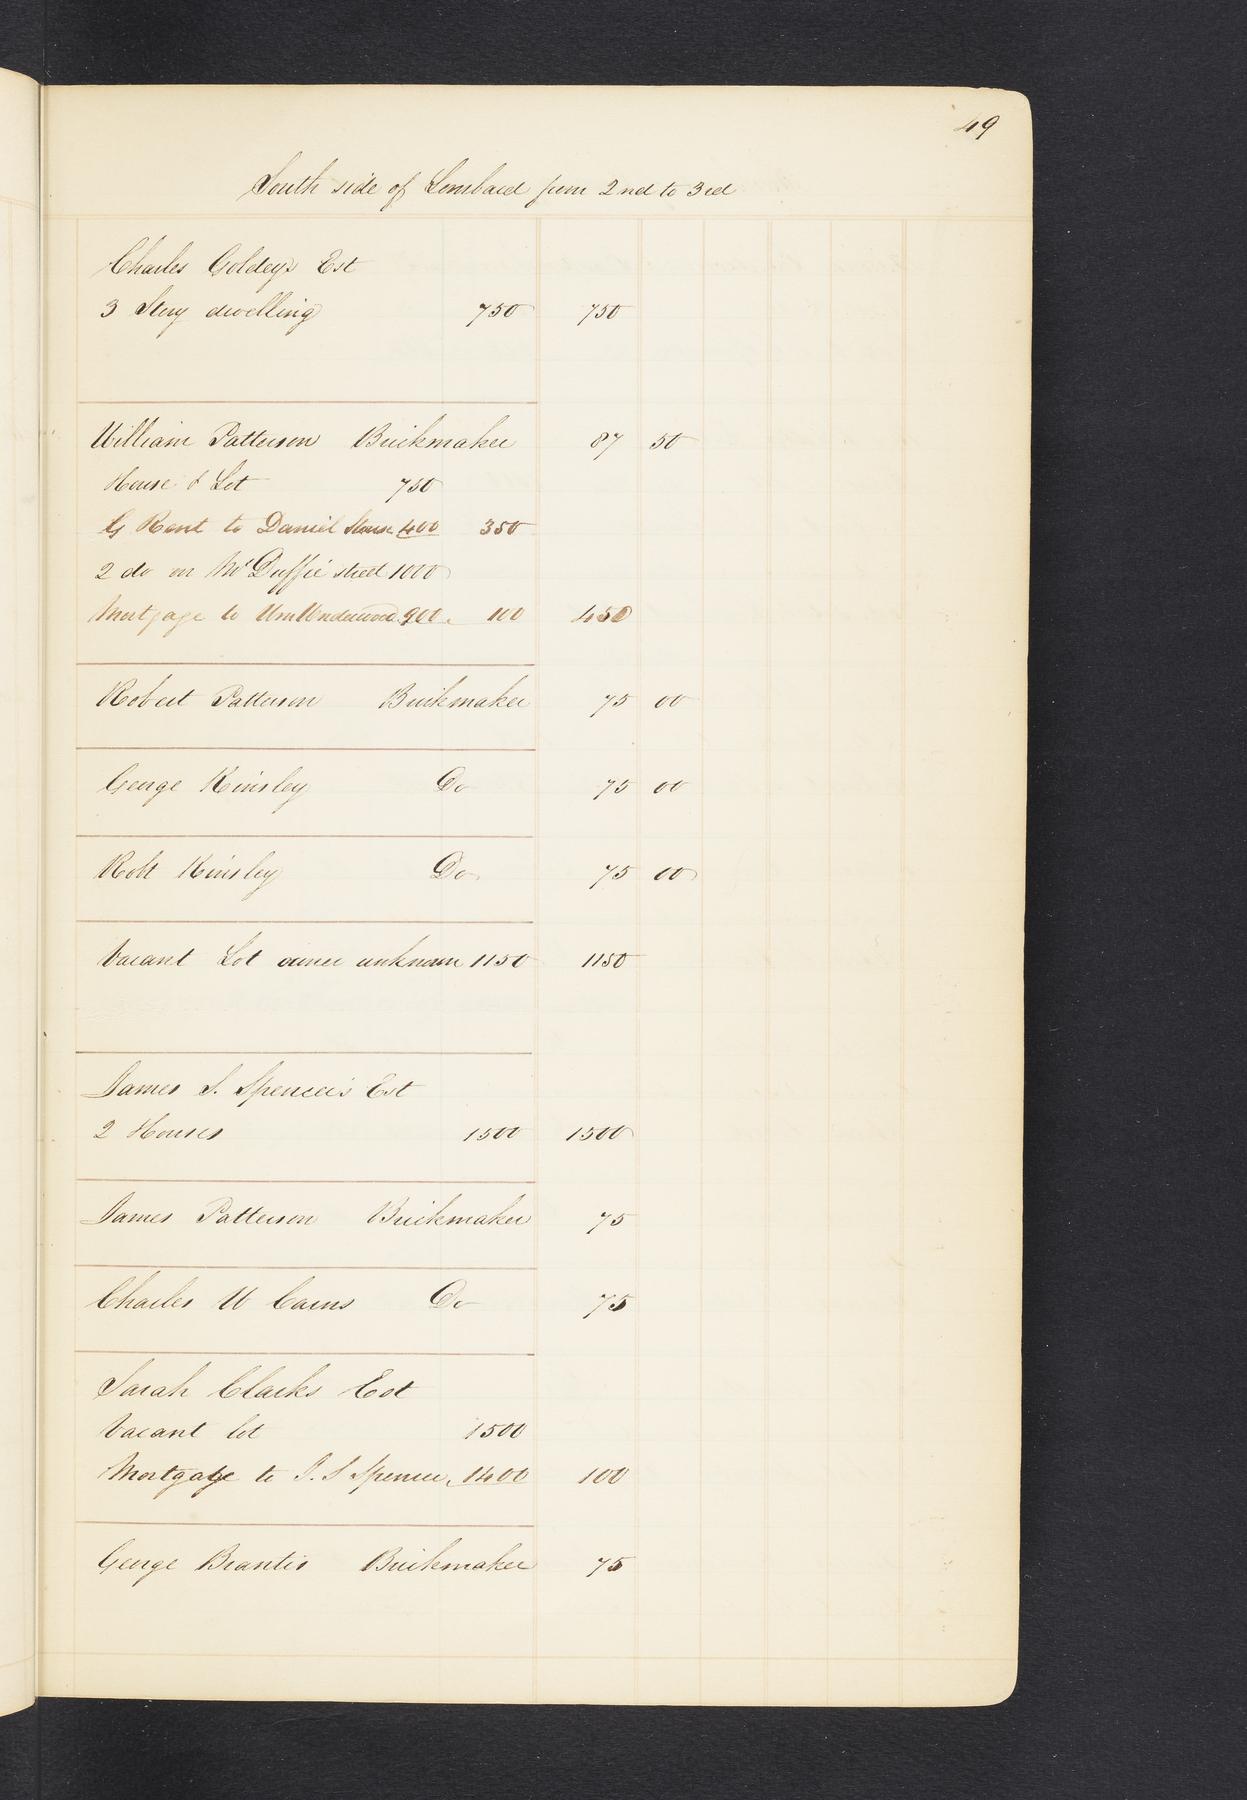 49
South side of Lombard from 2nd to 3rd
Charles Goldeys Est
3 Story dwelling 750 750
William Patterson Brickmaker 87 50
House & Lot 750
G Rent to Daniel 400 350
2 do on McDuffie street 1000
Mortgage to Wm Underwood 900 100 450
Robert Patterson Brickmaker 75 00
George Kinsley Do 75 00
Robt Kinsley Do 75 00
Vacant Lot owner unknown 1150 1150
James S. Spencer's Est
2 Houses 1500 1500
James Patterson Brickmaker 75
Charles W Cains Do 75
Sarah Clarks Est
Vacant lot 1500
Mortgage to J. S Spencer 1400 100
George Brantis Brickmaker 75